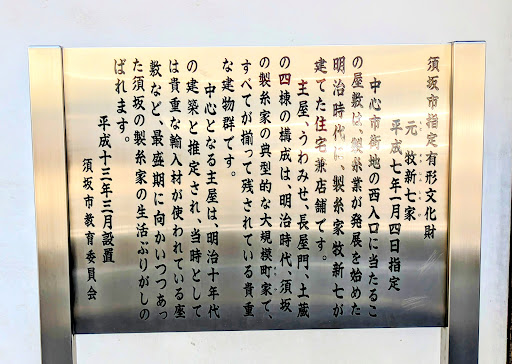 須坂市指定有形文化財
元 牧新七家
平成七年一月四日指定
中心市街地の西入口に当たるこ
の屋敷は、製糸業が発展を始めた
明治時代に、製糸家牧新七が
建てた住宅兼店舗です。
主屋、うわみせ、長屋門、土蔵
の四棟の構成は、明治時代、須坂
の製糸家の典型的な大規模町家で、
すべてが揃って残されている貴重
な建物群です。
中心となる主屋は、明治十年代
の建築と推定され、当時として
は貴重な輸入材が使われている座
敷など、最盛期に向かいつつあっ
た須坂の製糸家の生活ぶりがしの
ばれます。
平成十三年三月設置
須坂市教育委員会